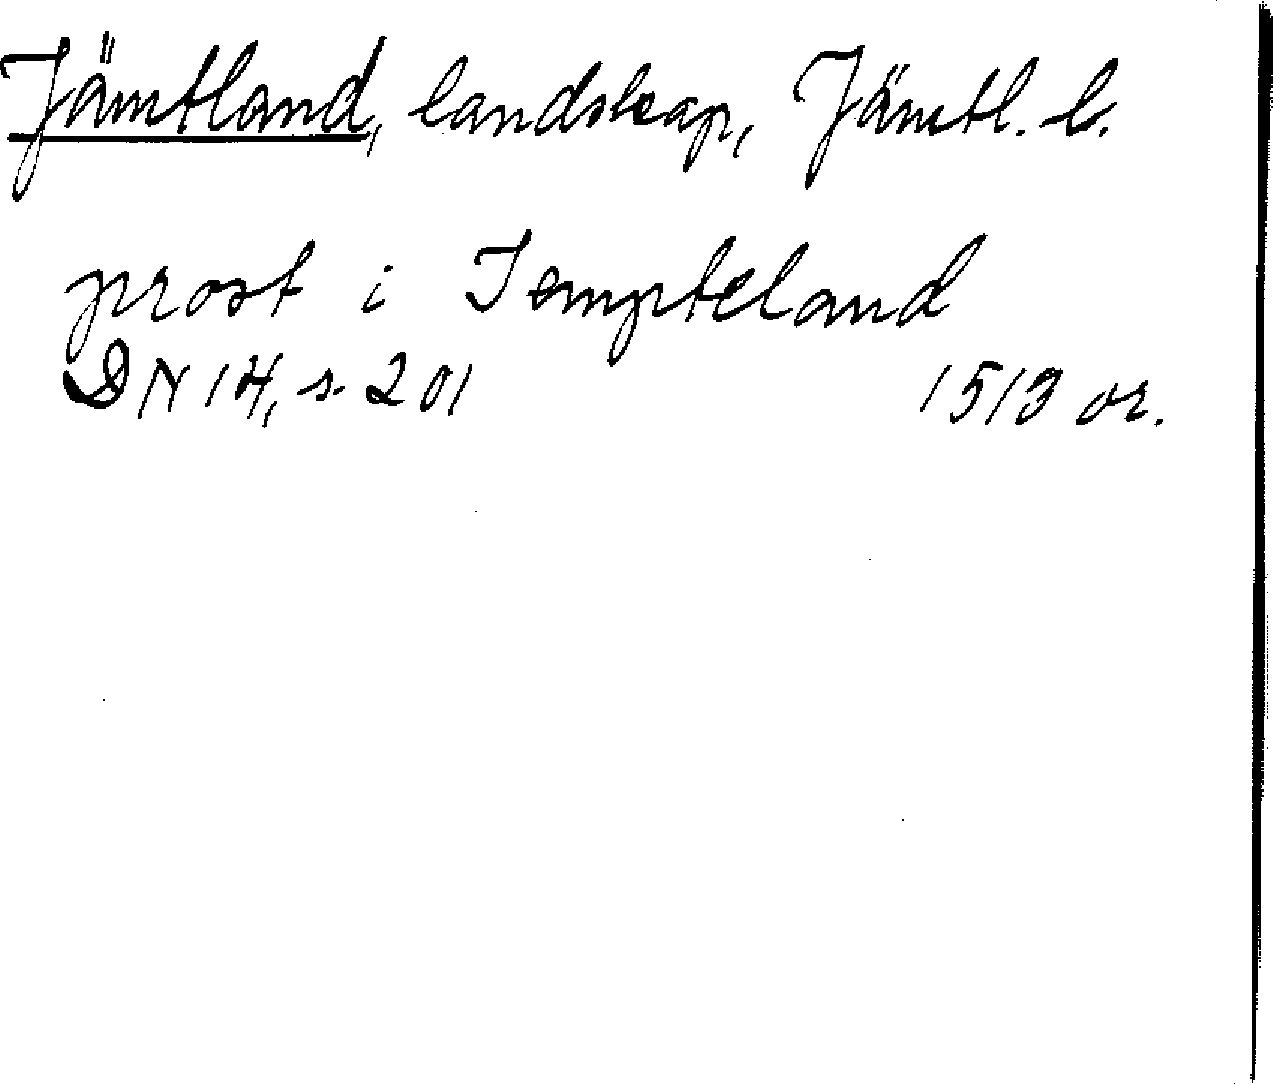 Jämtland, landskap, Jämtl. l.
prost i Jempteland
DN 14, s. 201 1513 or.